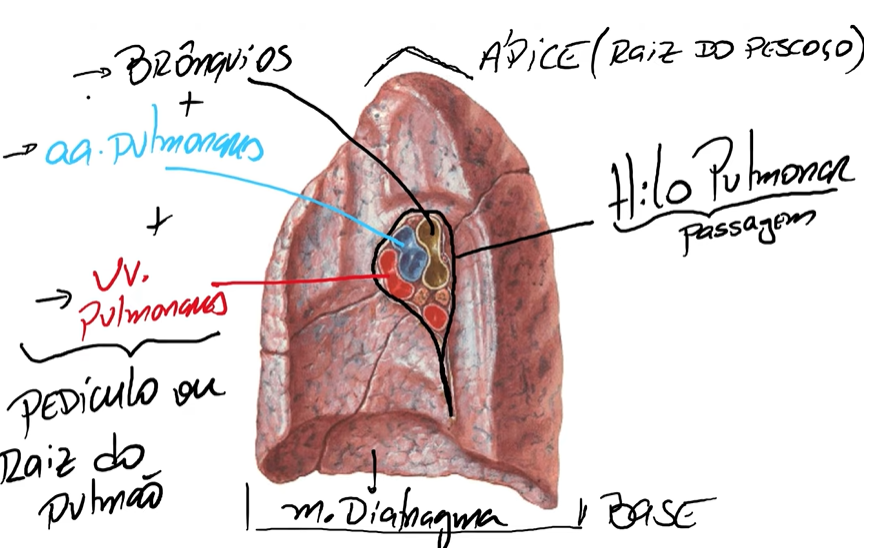 → BRÔNQUIOS
+
→ aa. pulmonares
+
→ VV.
pulmonares
PEDÍCULO ou
Raiz do
pulmão
ÁPICE (RAIZ DO PESCOÇO)
Hilo Pulmonar
passagem
m. Diafragma
BASE